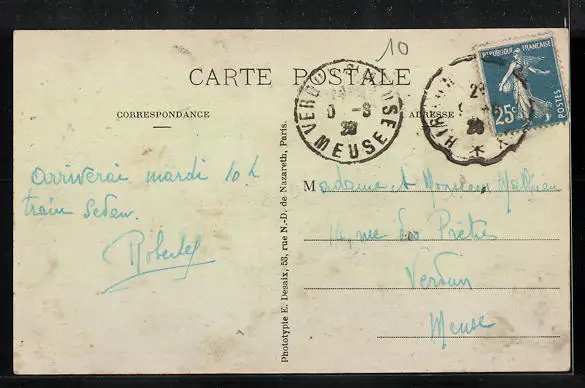 10
CARTE POSTALE
CORRESPONDANCE
ADRESSE
RÉPUBLIQUE FRANÇAISE
25c
POSTES
VERDUN
MEUSE
Arriverai mardi 10 h
train Sedan.
M adame et Monsieur Mathieu
rue des Prêtres
Verdun
Meuse
Phototypie E. Desaix, 53, rue N.-D. de Nazareth, Paris.